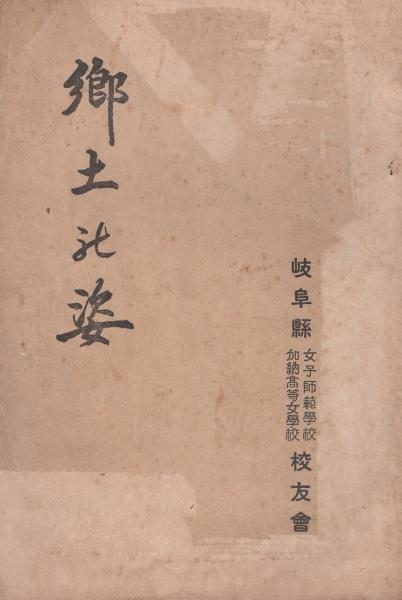 鄕土の姿
岐阜縣
女子師範學校
加納髙等女學校
校友會